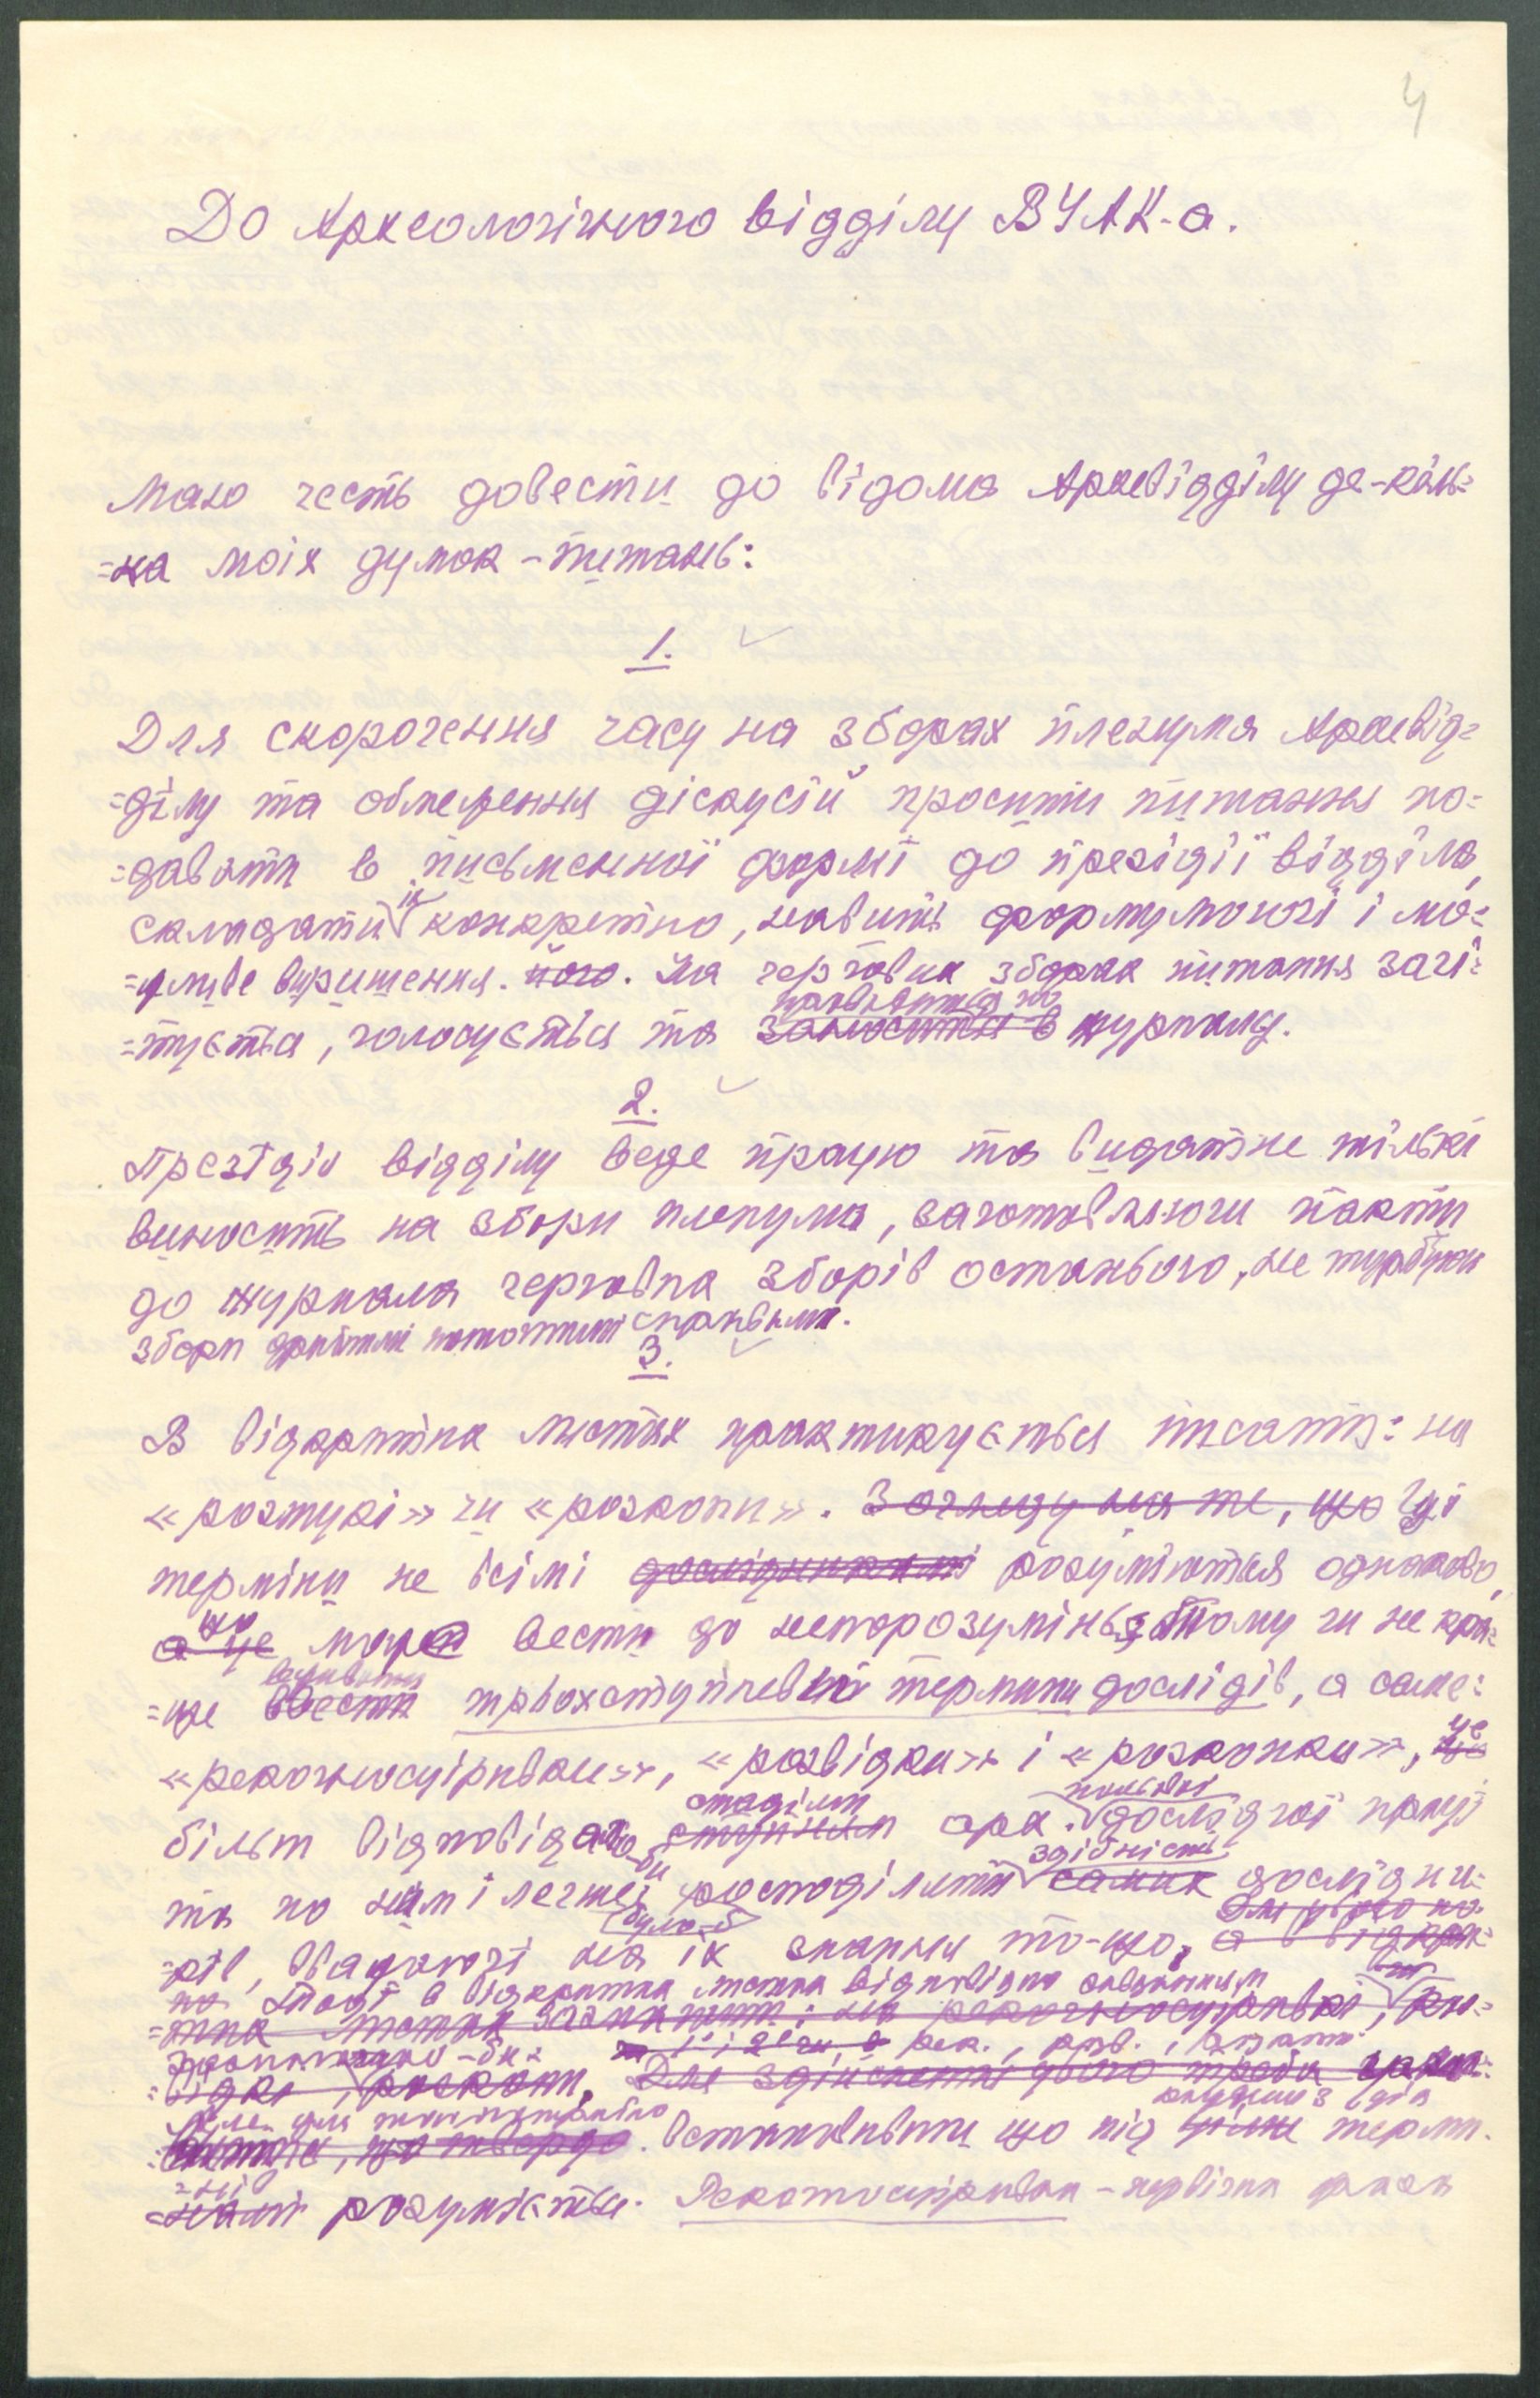 4
До Археологічного відділу ВУАК-а.
Маю честь довести до відома Археовідділу де-кіль=
=ка моіх думок - питань:
1.
Для скорочення часу на зборах пленума Археовід=
=ділу та обмеження діскусій просити питання по=
=давати в письменної формі до презідії відділа,
складати їх конкретно, навить формулюючі і мо=
=жливе вирішення. його. На чергових зборах питання зачі=
=тується, голосується та заноситься в журнала.
2.
Презідія відділу веде працю та видатне тількі
виносить на збори пленума, заготовляючи пакти
до журнала чергових зборів останнього, не турбуючи
збори дрібними поточними справами.
3.
В відкритих листах практикується писати: на
«розшукі» чи «розкопи». З огляду на те, що ці
терміни не всімі дослідниками розуміються однаково,
а це що може вести до непорозумінь, тому чи не кра=
=ще ввести вживати трьохступневі терміни дослідів, а саме:
«рекогносціровки», «розвідки» і «розкопки», це
більш відповідало-би ступням стадіям арх. польової дослідчої праці
та по ним і легше було-б росподіляти самих здібність дослідни=
=ків, зважаючі на їх знання то-що, а в відкри=
тоді в відкритих листах відповідно зазначити
=тих листах зазначити: на рекогносціровкі, роз=
рек., розв., і розкоп.
=відкі, розкопи. Для здійснення цього треба
встановити що під цими терми=
=нами розуміється. Рекогносціровка - первічна фаза